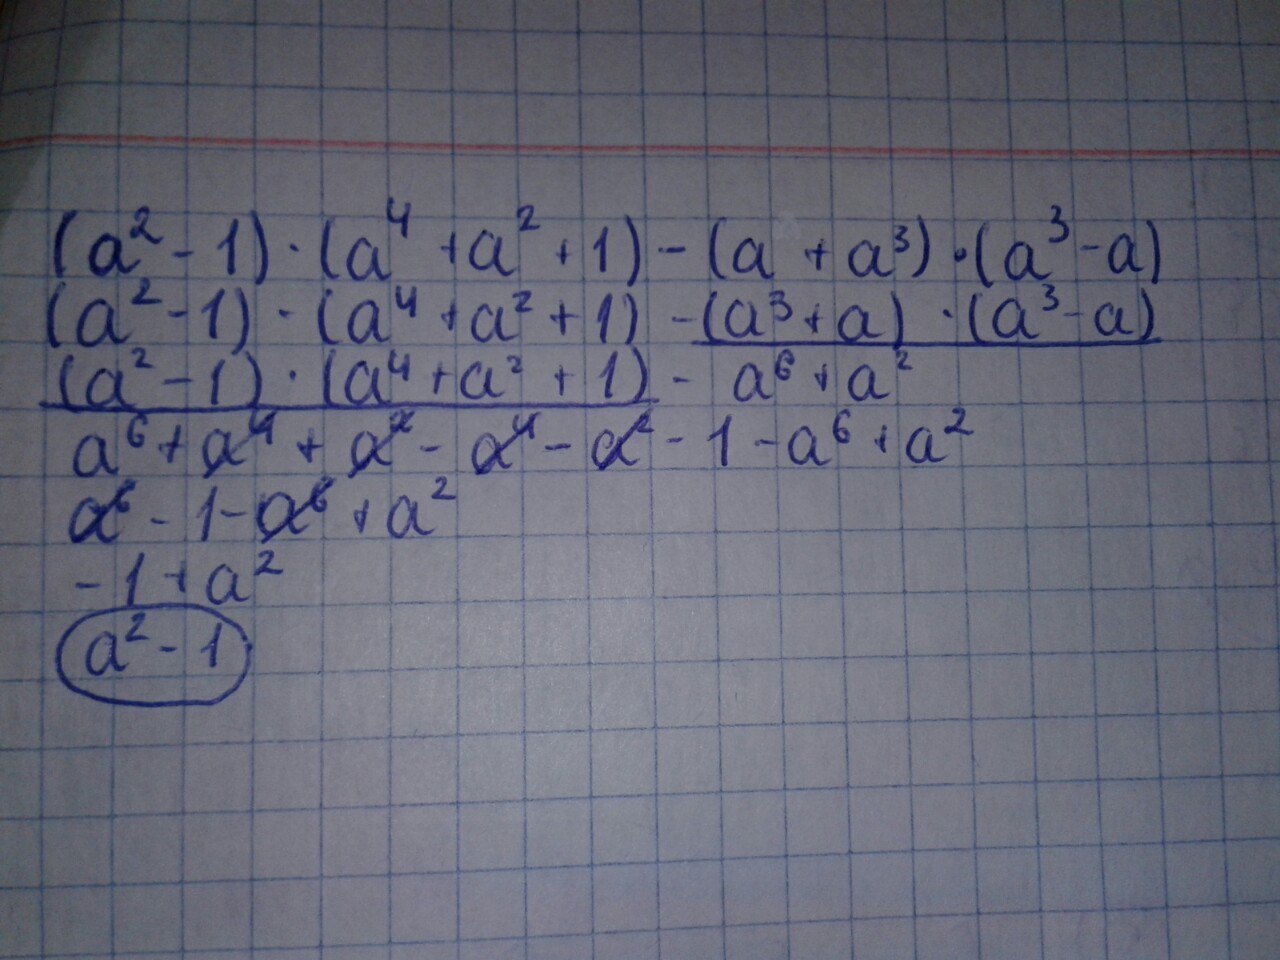 (a² - 1) · (a⁴ + a² + 1) - (a + a³) · (a³ - a)
(a² - 1) · (a⁴ + a² + 1) - (a³ + a) · (a³ - a)
(a² - 1) · (a⁴ + a² + 1) - a⁶ + a²
a⁶ + a⁴ + a² - a⁴ - a² - 1 - a⁶ + a²
a⁶ - 1 - a⁶ + a²
- 1 + a²
a² - 1